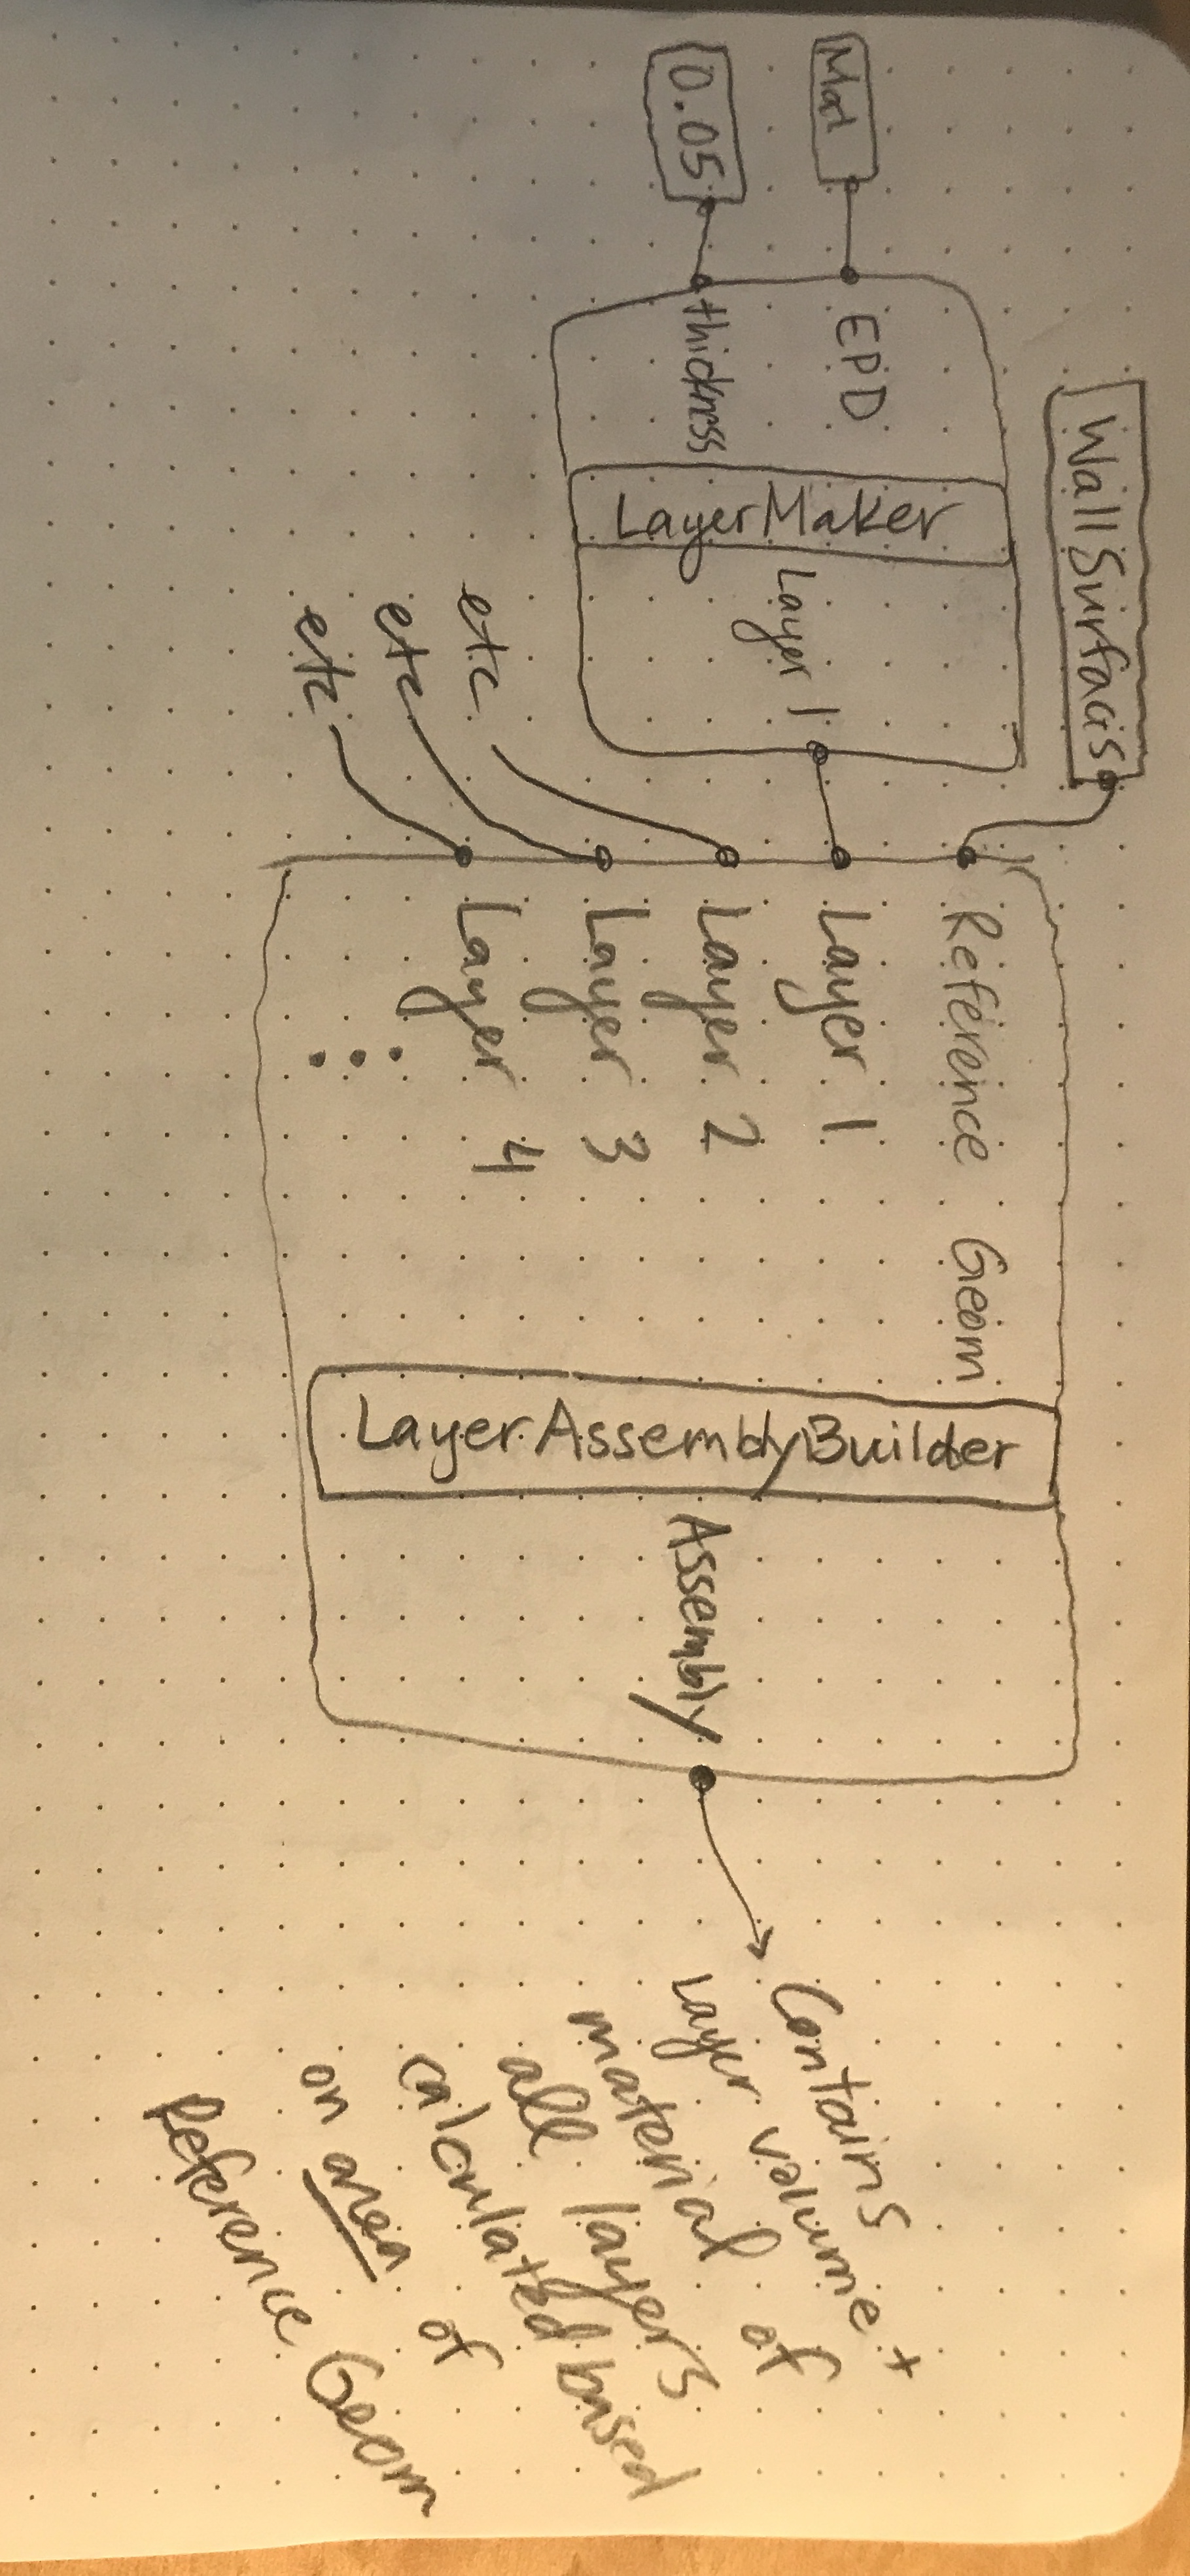 Wall Surfaces
Mat
0.05
EPD
thickness
LayerMaker
Layer 1
etc
etc
etc
Reference Geom
Layer 1
Layer 2
Layer 3
Layer 4
LayerAssemblyBuilder
Assembly
Contains
Layer volume +
material of
all layers
calculated based
on area of
Reference Geom